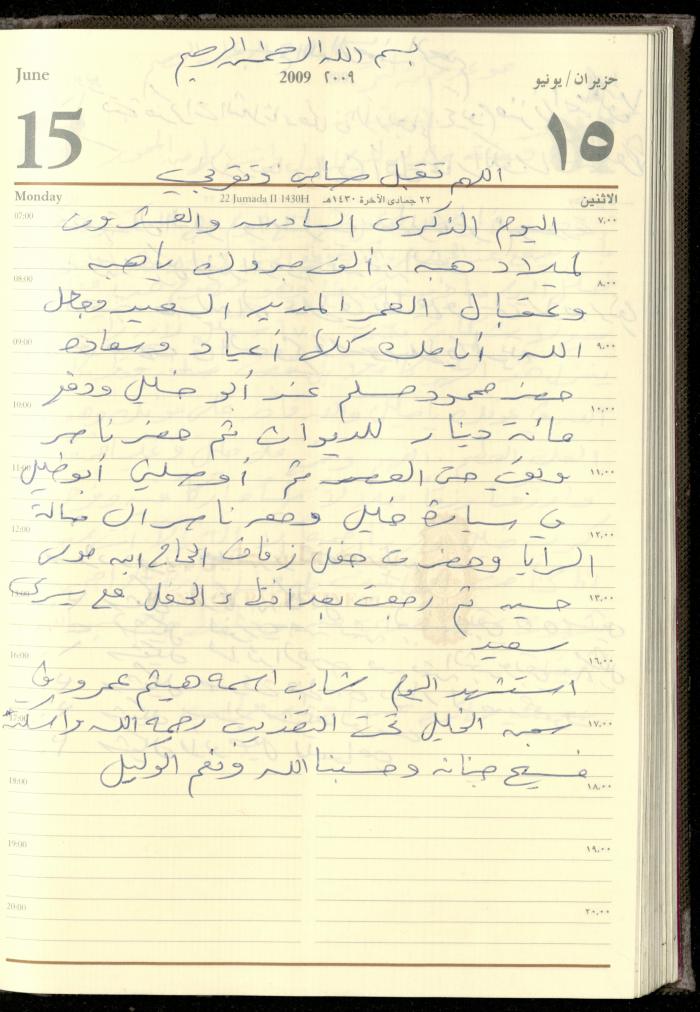 بسم الله الرحمن الرحيم
June
2009 ٢٠٠٩
حزيران / يونيو
15
١٥
اللهم تقبل
Monday
22 Jumada II 1430H ٢٢ جمادى الآخرة ١٤٣٠هـ
الاثنين
07:00 ٧,٠٠
اليوم الذكرى السادسه والعشرون
لميلاد هبه . ألف مبروك يا هبه
08:00 ٨,٠٠
وعقبال العمر المديد السعيد وجعل
09:00 ٩,٠٠
الله أيامك كلها أعياد وسعاده
حضر محمود مسلم عند أبو خليل ودفع
10:00 ١٠,٠٠
مائة دينار للديوان ثم حضر ناصر
11:00 ١١,٠٠
وبقي حتى العصر ثم أوصلني أبو خليل
في سيارة خليل وحضر ناصر الى صالة
12:00 ١٢,٠٠
الرايا وحضرت حفل زفاف الحاج ابن موسى
13:00 ١٣,٠٠
حسين ثم رجعت بعد انتهاء الحفل مع يسرى
سعيد
16:00 ١٦,٠٠
استشهد اليوم شاب اسمه هيثم عمرو في
17:00 ١٧,٠٠
سجن الخليل تحت التعذيب رحمه الله واسكنه
فسيح جنانه وحسبنا الله ونعم الوكيل
18:00 ١٨,٠٠
19:00 ١٩,٠٠
20:00 ٢٠,٠٠